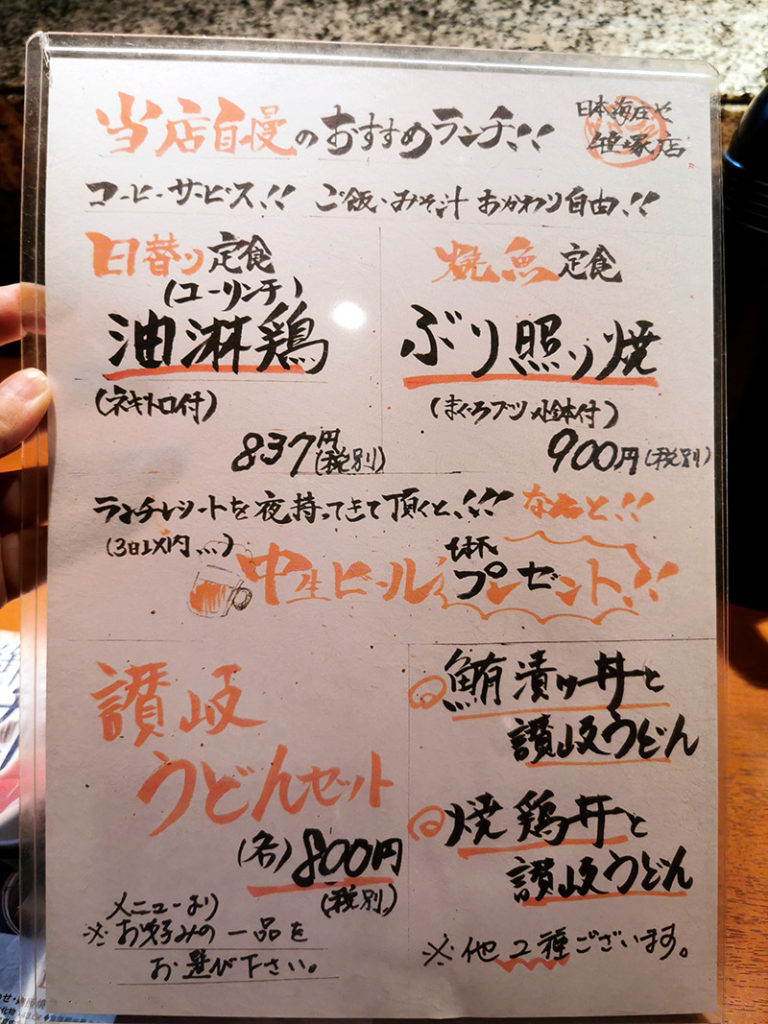 当店自慢のおすすめランチ!!
日本海庄や
笹塚店
コーヒーサービス!! ご飯・みそ汁 おかわり自由!!
日替り定食
(ユーリンチ)
油淋鶏
(ネギトロ付)
837円(税別)
焼魚定食
ぶり照り焼
(まぐろブツ小鉢付)
900円(税別)
ランチレシートを夜持ってきて頂くと!!! なんと!!
(3日以内...)
中生ビール1杯プレゼント!!
讃岐
うどんセット
(各)800円
(税別)
メニューより
※お好みの一品を
お選び下さい。
鮪漬け丼と
讃岐うどん
焼鶏丼と
讃岐うどん
※他2種ございます。